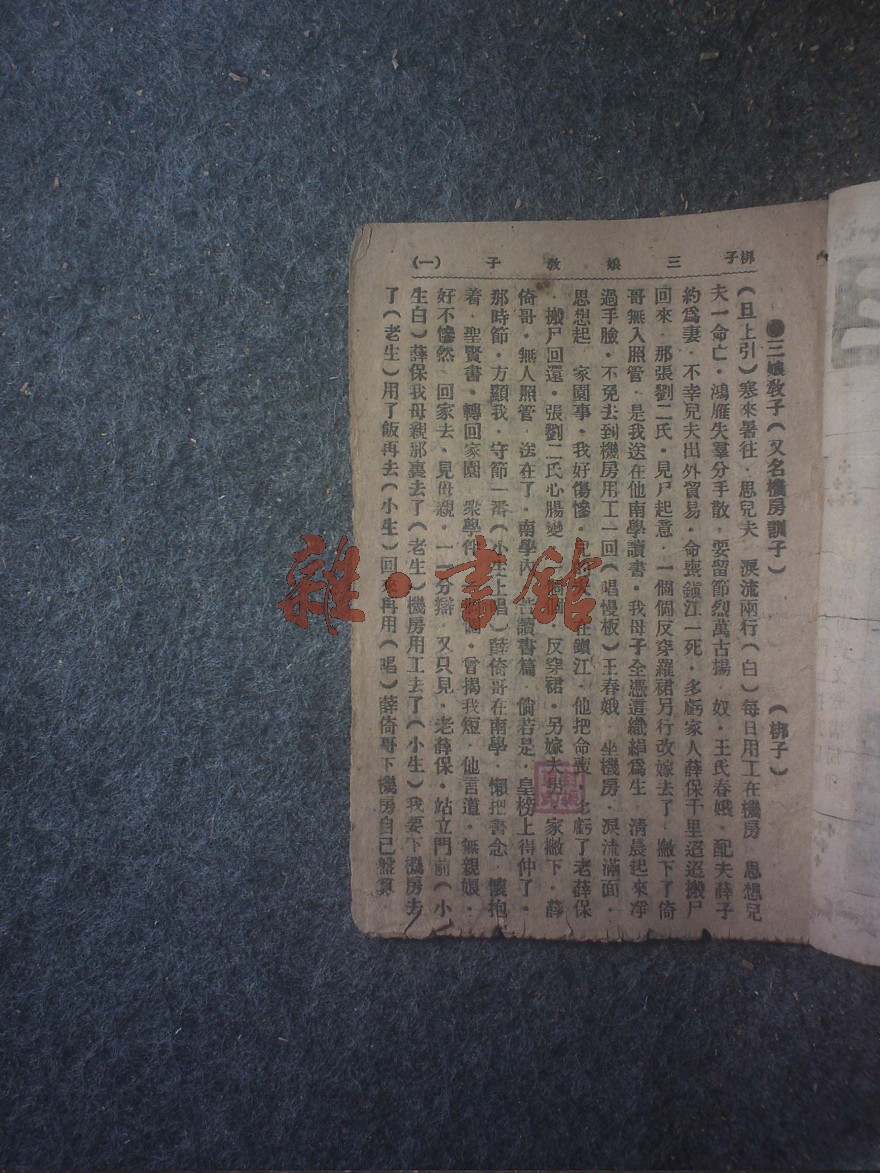 梆子三娘教子(一)
●三娘教子(又名機房訓子)(梆子)
(旦上引)寒來暑往·思兒夫·淚流兩行(白)每日用工在機房·思想兒
夫一命亡·鴻雁失羣分手散·要留節烈萬古揚·奴·王氏春娥·配夫薛子
約爲妻·不幸兒夫出外貿易·命喪鎭江一死·多虧家人薛保千里迢迢搬尸
回來·那張劉二氏·見尸起意·一個個反穿羅裙另行改嫁去了·撇下了倚
哥無人照管·是我送在他南學讀書·我母子全憑這織絹爲生·清晨起來凈
過手臉·不免去到機房用工一回(唱慢板)王春娥·坐機房·淚流滿面·
思想起·家園事·我好傷慘·在鎭江·他把命喪·虧了老薛保
·搬尸回還·張劉二氏心腸變·個個·反穿裙·另嫁夫男·家撇下·薛
倚哥·無人照管·送在了·南學內·讀書篇·倘若是·皇榜上得仲了·
那時節·方顯我·守節一番(小生上唱)薛倚哥在南學·懶把書念·懷抱
着·聖賢書·轉回家園·衆學伴·曾揭我短·他言道·無親娘·
好不慘然·回家去·見母親·一一分辯·又只見·老薛保·站立門前(小
生白)薛保我母親那裏去了(老生)機房用工去了(小生)我要下機房去
了(老生)用了飯再去(小生)回來再用(唱)薛倚哥下機房自己盤算·
雜·書館